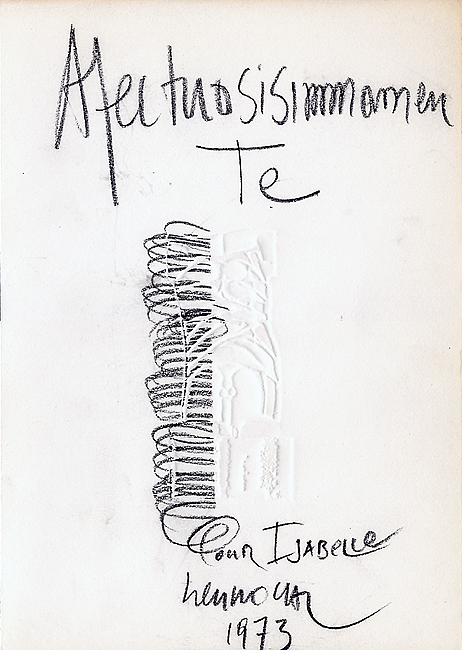 Afectuosisimmamen
Te
Pour ISABELLE
1973